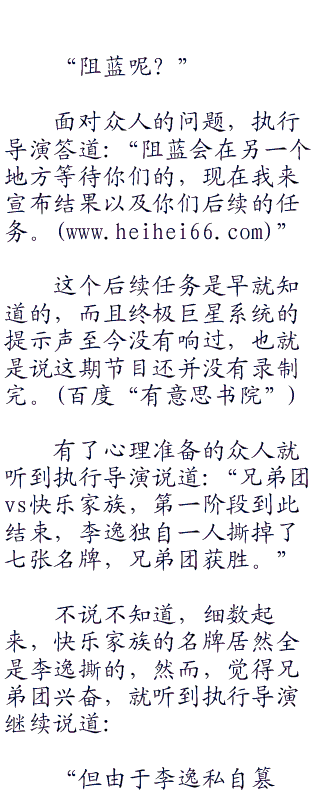 “阻蓝呢？”
面对众人的问题，执行
导演答道：“阻蓝会在另一个
地方等待你们的，现在我来
宣布结果以及你们后续的任
务。(www.heihei66.com)”
这个后续任务是早就知
道的，而且终极巨星系统的
提示声至今没有响过，也就
是说这期节目还并没有录制
完。(百度“有意思书院”)
有了心理准备的众人就
听到执行导演说道：“兄弟团
vs快乐家族，第一阶段到此
结束，李逸独自一人撕掉了
七张名牌，兄弟团获胜。”
不说不知道，细数起
来，快乐家族的名牌居然全
是李逸撕的，然而，觉得兄
弟团兴奋，就听到执行导演
继续说道：
“但由于李逸私自篡